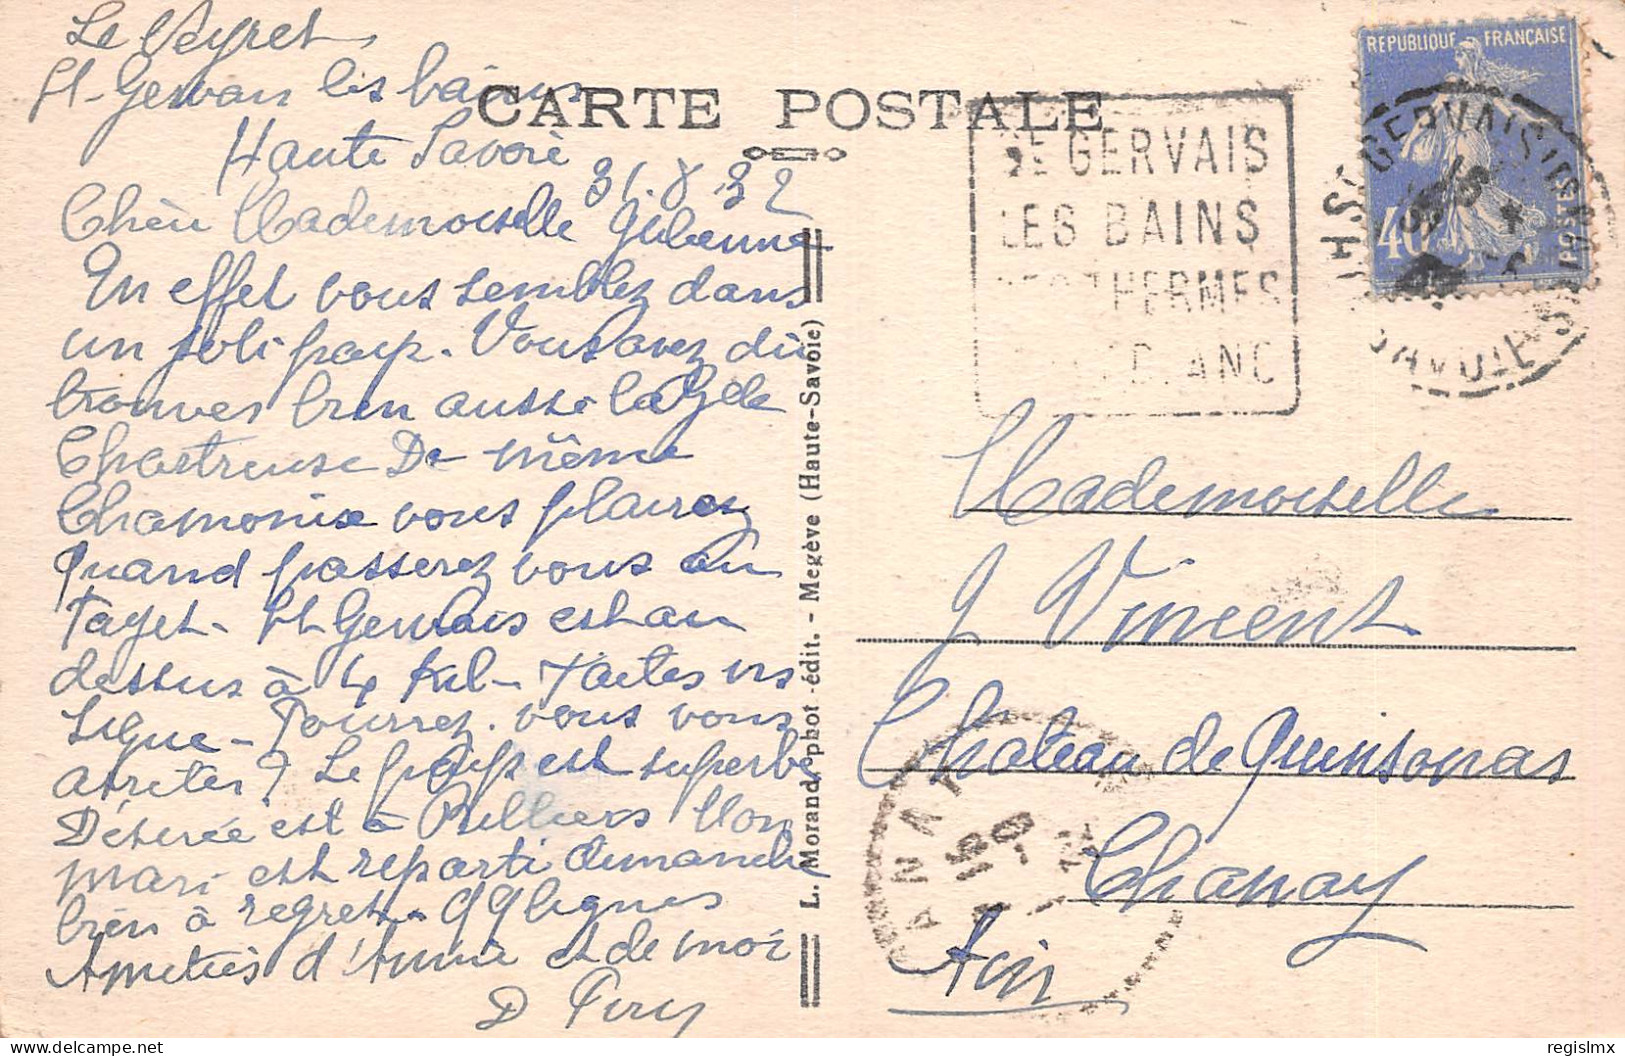 Le Veyret
St-Gervais les bains
Haute Savoie
31.8.32
Chère Mademoiselle
En effet vous semblez dans
un joli pays. Vous avez dû
trouver bien aussi la Gde
Chartreuse De même
Chamonix vous plaira
Quand passerez vous au
Fayet. St Gervais est au
dessus à 4 kil- Faites un
signe - Pourrez. vous vous
arreter? Le pays est superbe
Désirée est à Mon
mari est reparti dimanche
bien à regret. 
Amitiés d'Annie et de moi
CARTE POSTALE
L. Morand, phot.-édit. - Megève (Haute-Savoie)
GERVAIS
LES BAINS
THERMES
REPUBLIQUE FRANÇAISE
40
POSTES
ST GERVAIS
SAVOIE
Mademoiselle
J Vincent
Château de Quinsonas
Chanay
Ain
ANAY
regislmx
Delcampe.net